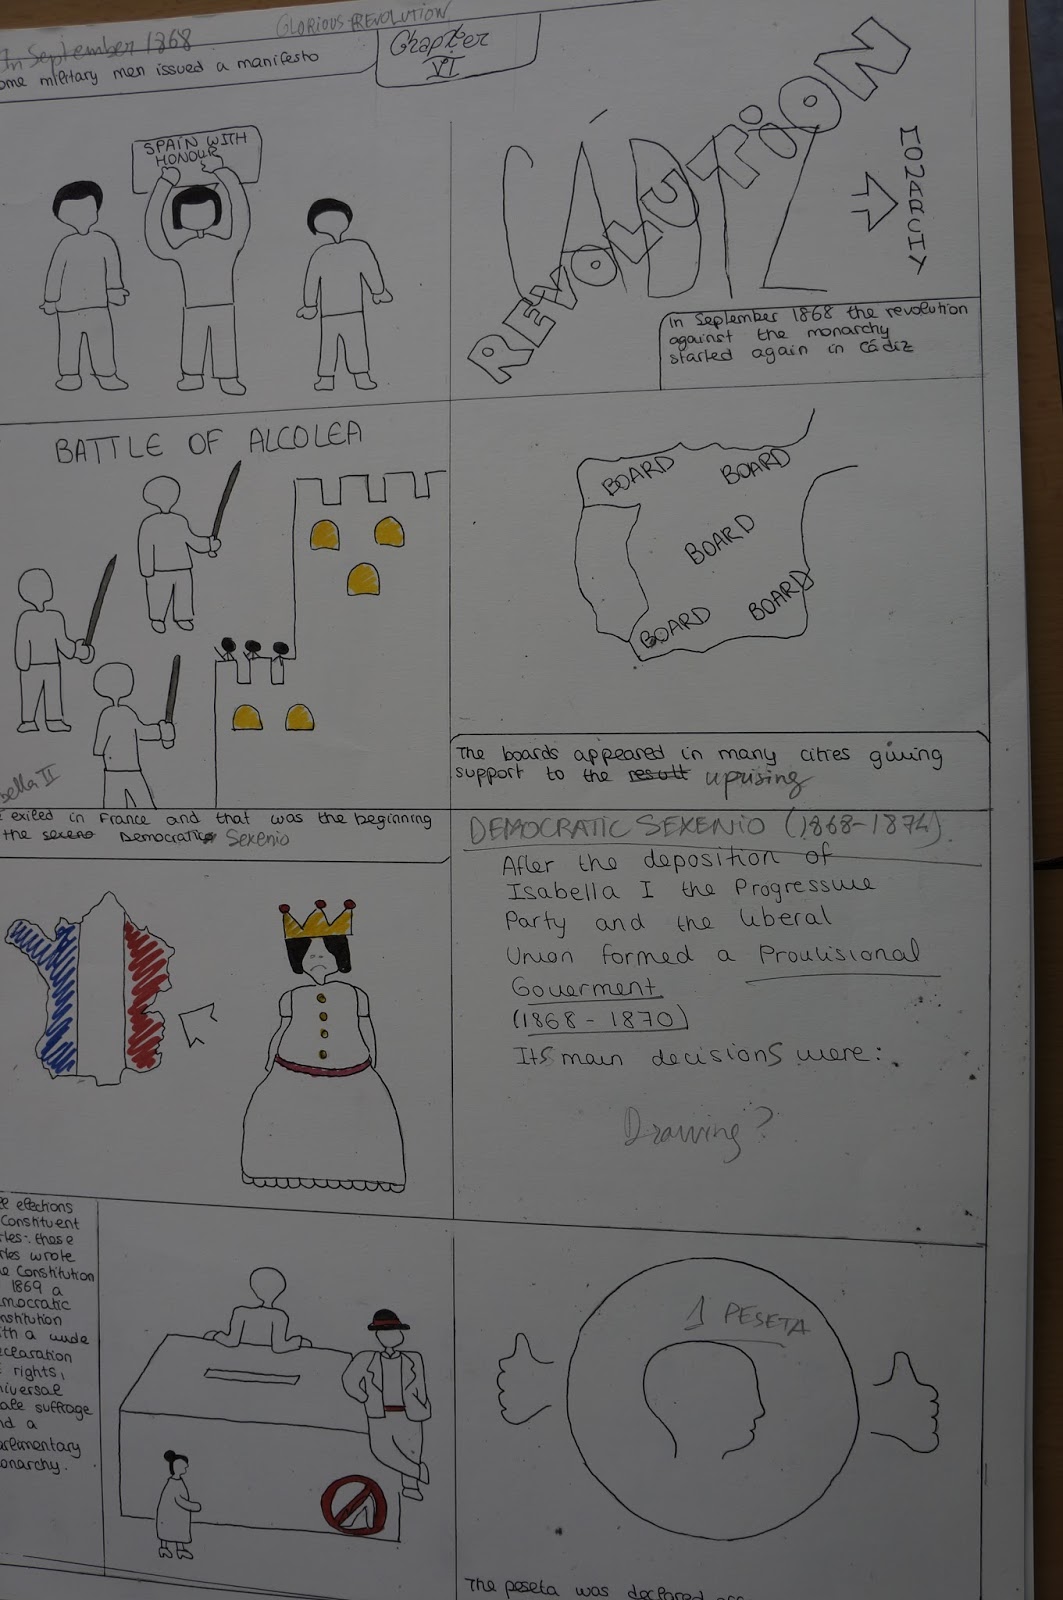 GLORIOUS REVOLUTION
In September 1868
some military men issued a manifesto
Chapter
VI
SPAIN WITH
HONOUR
CÁDIZ
REVOLUTION
MONARCHY
In September 1868 the revolution
against the monarchy
started again in Cádiz
BATTLE OF ALCOLEA
BOARD
BOARD
BOARD
BOARD
BOARD
The boards appeared in many cities giving
support to the result uprising
bella II
exiled in France and that was the beginning
the sexeno Democratic Sexenio
DEMOCRATIC SEXENIO (1868-1874).
After the deposition of
Isabella I the Progressive
Party and the liberal
Union formed a Provisional
Goverment
(1868 - 1870)
Its main decisions were:
Drawing?
elections
Constituent
these
wrote
Constitution
1869 a
mocratic
nstitution
with a wide
declaration
rights,
niversal
ale suffrage
nd a
arlimentary
onarchy.
1 PESETA
The peseta was declared